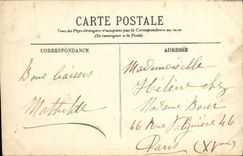 CARTE POSTALE
Tous les Pays étrangers n'acceptent pas la Correspondance au recto.
(Se renseigner à la Poste)
CORRESPONDANCE
ADRESSE
Bons baisers
Mathilde
Mademoiselle
Hélène chez
Madame Bour
46 Rue 46
Paris (XVème)